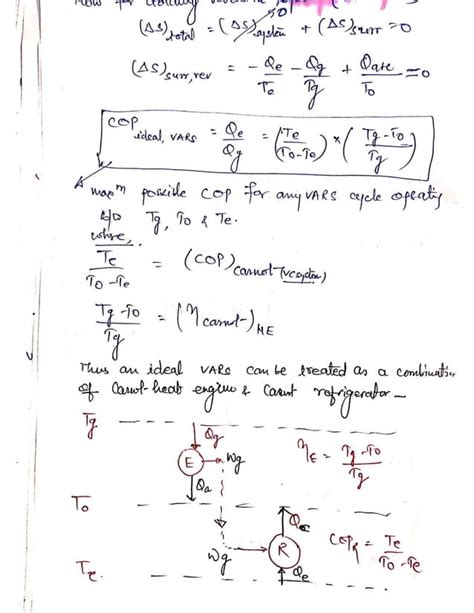 Now for
(ΔS)total = (ΔS)system + (ΔS)surr = 0
0
(ΔS)surr,rev = - Qe/Te - Qg/Tg + Qa+c/To = 0
COP ideal, VARS = Qe/Qg = (Te/(To-Te)) × ((Tg-To)/Tg)
maxm possible COP for any VARS cycle operating
b/w Tg, To & Te.
where,
Te/(To-Te) = (COP)carnot (VC system)
(Tg-To)/Tg = (η carnot)HE
Thus an ideal VARS can be treated as a combination
of Carnot heat engine & Carnot refrigerator-
Tg
Qg
E Wg
ηE = (Tg-To)/Tg
Qa
To
Qc
Wg R
COPR = Te/(To-Te)
Te Qe